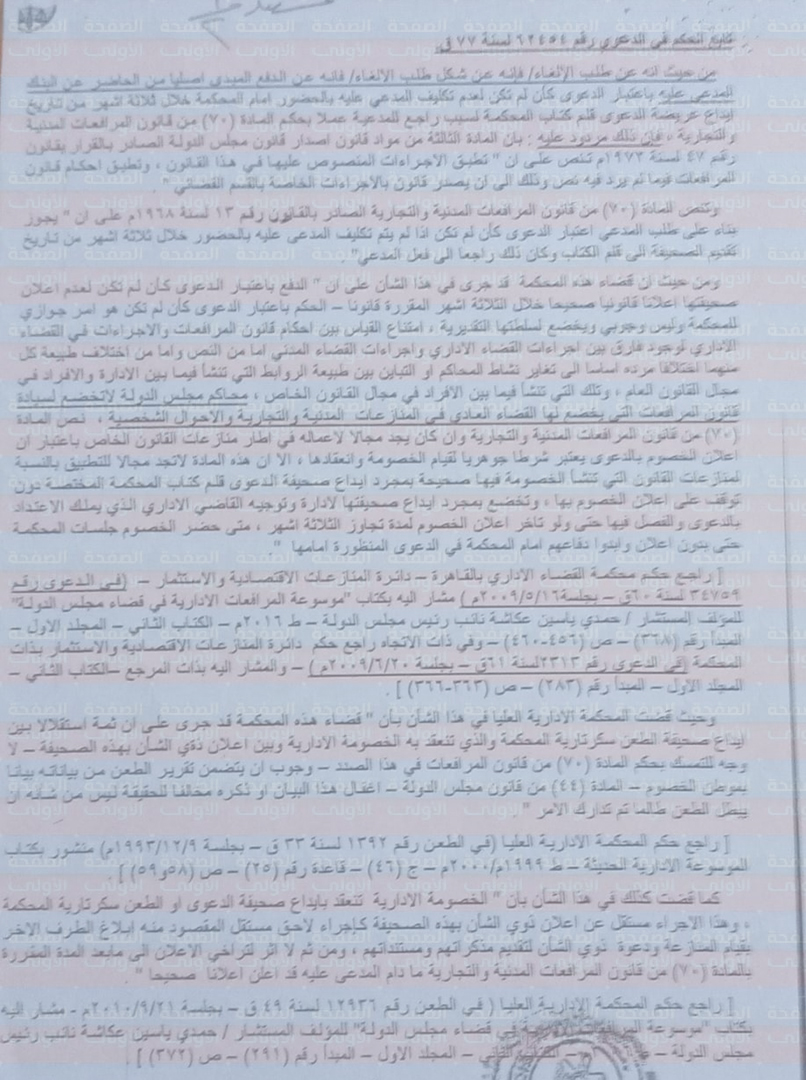 تابع الحكم في الدعوى رقم ٦٢٤٥٤ لسنة ٧٧ ق
من حيث انه عن طلب الإلغاء/ فإنه عن شكل طلب الالغاء/ فانه عن الدفع المبدى اصليا من الحاضر عن البنك
المدعى عليه باعتبار الدعوى كأن لم تكن لعدم تكليف المدعى عليه بالحضور امام المحكمة خلال ثلاثة اشهر من تاريخ
ايداع عريضة الدعوى قلم كتاب المحكمة لسبب راجع للمدعية عملا بحكم المادة (٧٠) من قانون المرافعات المدنية
والتجارية ، فإن ذلك مردود عليه : بان المادة الثالثة من مواد قانون اصدار قانون مجلس الدولة الصادر بالقرار بقانون
رقم ٤٧ لسنة ١٩٧٢م تنص على ان " تطبق الاجراءات المنصوص عليها في هذا القانون ، وتطبق احكام قانون
المرافعات فيما لم يرد فيه نص وذلك الى ان يصدر قانون بالاجراءات الخاصة بالقسم القضائي " .
وتنص المادة (٧٠) من قانون المرافعات المدنية والتجارية الصادر بالقانون رقم ١٣ لسنة ١٩٦٨م على ان " يجوز
بناء على طلب المدعى اعتبار الدعوى كأن لم تكن اذا لم يتم تكليف المدعى عليه بالحضور خلال ثلاثة اشهر من تاريخ
تقديم الصحيفة الى قلم الكتاب وكان ذلك راجعا الى فعل المدعي" .
ومن حيث ان قضاء هذه المحكمة قد جرى في هذا الشأن على ان " الدفع باعتبار الدعوى كأن لم تكن لعدم اعلان
صحيفتها اعلانا قانونيا صحيحا خلال الثلاثة اشهر المقررة قانونا – الحكم باعتبار الدعوى كأن لم تكن هو امر جوازي
للمحكمة وليس وجوبي ويخضع لسلطتها التقديرية ، امتناع القياس بين احكام قانون المرافعات والاجراءات في القضاء
الاداري لوجود فارق بين اجراءات القضاء الاداري واجراءات القضاء المدني اما من النص واما من اختلاف طبيعة كل
منهما اختلافا مرده اساسا الى تغاير نشاط المحاكم او التباين بين طبيعة الروابط التي تنشأ فيما بين الادارة والافراد في
مجال القانون العام ، وتلك التي تنشأ فيما بين الافراد في مجال القانون الخاص ، محاكم مجلس الدولة لاتخضع لسيادة
قانون المرافعات التي يخضع لها القضاء العادي في المنازعات المدنية والتجارية والاحوال الشخصية ، نص المادة
(٧٠) من قانون المرافعات المدنية والتجارية وان كان يجد مجالا لاعماله في اطار منازعات القانون الخاص باعتبار ان
اعلان الخصوم بالدعوى يعتبر شرطا جوهريا لقيام الخصومة وانعقادها ، الا ان هذه المادة لاتجد مجالا للتطبيق بالنسبة
لمنازعات القانون التي تنشأ الخصومة فيها صحيحة بمجرد ايداع صحيفة الدعوى قلم كتاب المحكمة المختصة دون
توقف على اعلان الخصوم بها ، وتخضع بمجرد ايداع صحيفتها لادارة وتوجيه القاضي الاداري الذي يملك الاعتداد
بالدعوى والفصل فيها حتى ولو تاخر اعلان الخصوم لمدة تجاوز الثلاثة اشهر ، متى حضر الخصوم جلسات المحكمة
حتى بدون اعلان وابدوا دفاعهم امام المحكمة في الدعوى المنظورة امامها " .
[ راجع حكم محكمة القضاء الاداري بالقاهرة – دائرة المنازعات الاقتصادية والاستثمار – (في الدعوى رقم
٣٤٧٥٩ لسنة ٦٠ق – بجلسة ٢٠٠٩/٥/١٦م ) مشار اليه بكتاب "موسوعة المرافعات الادارية في قضاء مجلس الدولة"
للمؤلف المستشار / حمدي ياسين عكاشة نائب رئيس مجلس الدولة – ط ٢٠١٦م – الكتاب الثاني – المجلد الاول –
المبدأ رقم (٣٦٨) – ص (٤٥٦-٤٦٠) – وفي ذات الاتجاه راجع حكم دائرة المنازعات الاقتصادية والاستثمار بذات
المحكمة (في الدعوى رقم ٢٣١٣ لسنة ٦١ق – بجلسة ٢٠٠٩/٦/٢٠م ) – والمشار اليه بذات المرجع –الكتاب الثاني –
المجلد الاول – المبدأ رقم (٢٨٣) – ص (٣٦٣-٣٦٦) ] .
وحيث قضت المحكمة الادارية العليا في هذا الشأن بأن " قضاء هذه المحكمة قد جرى على ان ثمة استقلالا بين
ايداع صحيفة الطعن سكرتارية المحكمة والذي تنعقد به الخصومة الادارية وبين اعلان ذوي الشأن بهذه الصحيفة – لا
وجه للتمسك بحكم المادة (٧٠) من قانون المرافعات في هذا الصدد – وجوب ان يتضمن تقرير الطعن من بياناته بيانا
بموطن الخصوم – المادة (٤٤) من قانون مجلس الدولة – اغفال هذا البيان او ذكره مخالفا للحقيقة ليس من شأنه ان
يبطل الطعن طالما تم تدارك الامر " .
[ راجع حكم المحكمة الادارية العليا (في الطعن رقم ١٣٩٢ لسنة ٣٣ ق – بجلسة ١٩٩٣/١٢/٩م) منشور بكتاب
الموسوعة الادارية الحديثة – ط ١٩٩٩م/٢٠٠٠م – ج (٤٦) – قاعدة رقم (٢٥) – ص (٥٨و٥٩) ] .
كما قضت كذلك في هذا الشأن بان " الخصومة الادارية تنعقد بايداع صحيفة الدعوى او الطعن سكرتارية المحكمة
، وهذا الاجراء مستقل عن اعلان ذوي الشأن بهذه الصحيفة كإجراء لاحق مستقل المقصود منه ابلاغ الطرف الاخر
بقيام المنازعة ودعوة ذوي الشأن لتقديم مذكراتهم ومستنداتهم ، ومن ثم لا اثر لتراخي الاعلان الى مابعد المدة المقررة
بالمادة (٧٠) من قانون المرافعات المدنية والتجارية ما دام المدعى عليه قد اعلن اعلانا صحيحا " .
[ راجع حكم المحكمة الادارية العليا ( في الطعن رقم ١٢٩٣٦ لسنة ٤٩ ق – بجلسة ٢٠١٠/٩/٢١م - مشار اليه
بكتاب "موسوعة المرافعات الادارية في قضاء مجلس الدولة" للمؤلف المستشار / حمدي ياسين عكاشة نائب رئيس
مجلس الدولة – الكتاب الثاني – المجلد الاول – المبدأ رقم (٢٩١) – ص (٣٧٢) ] .